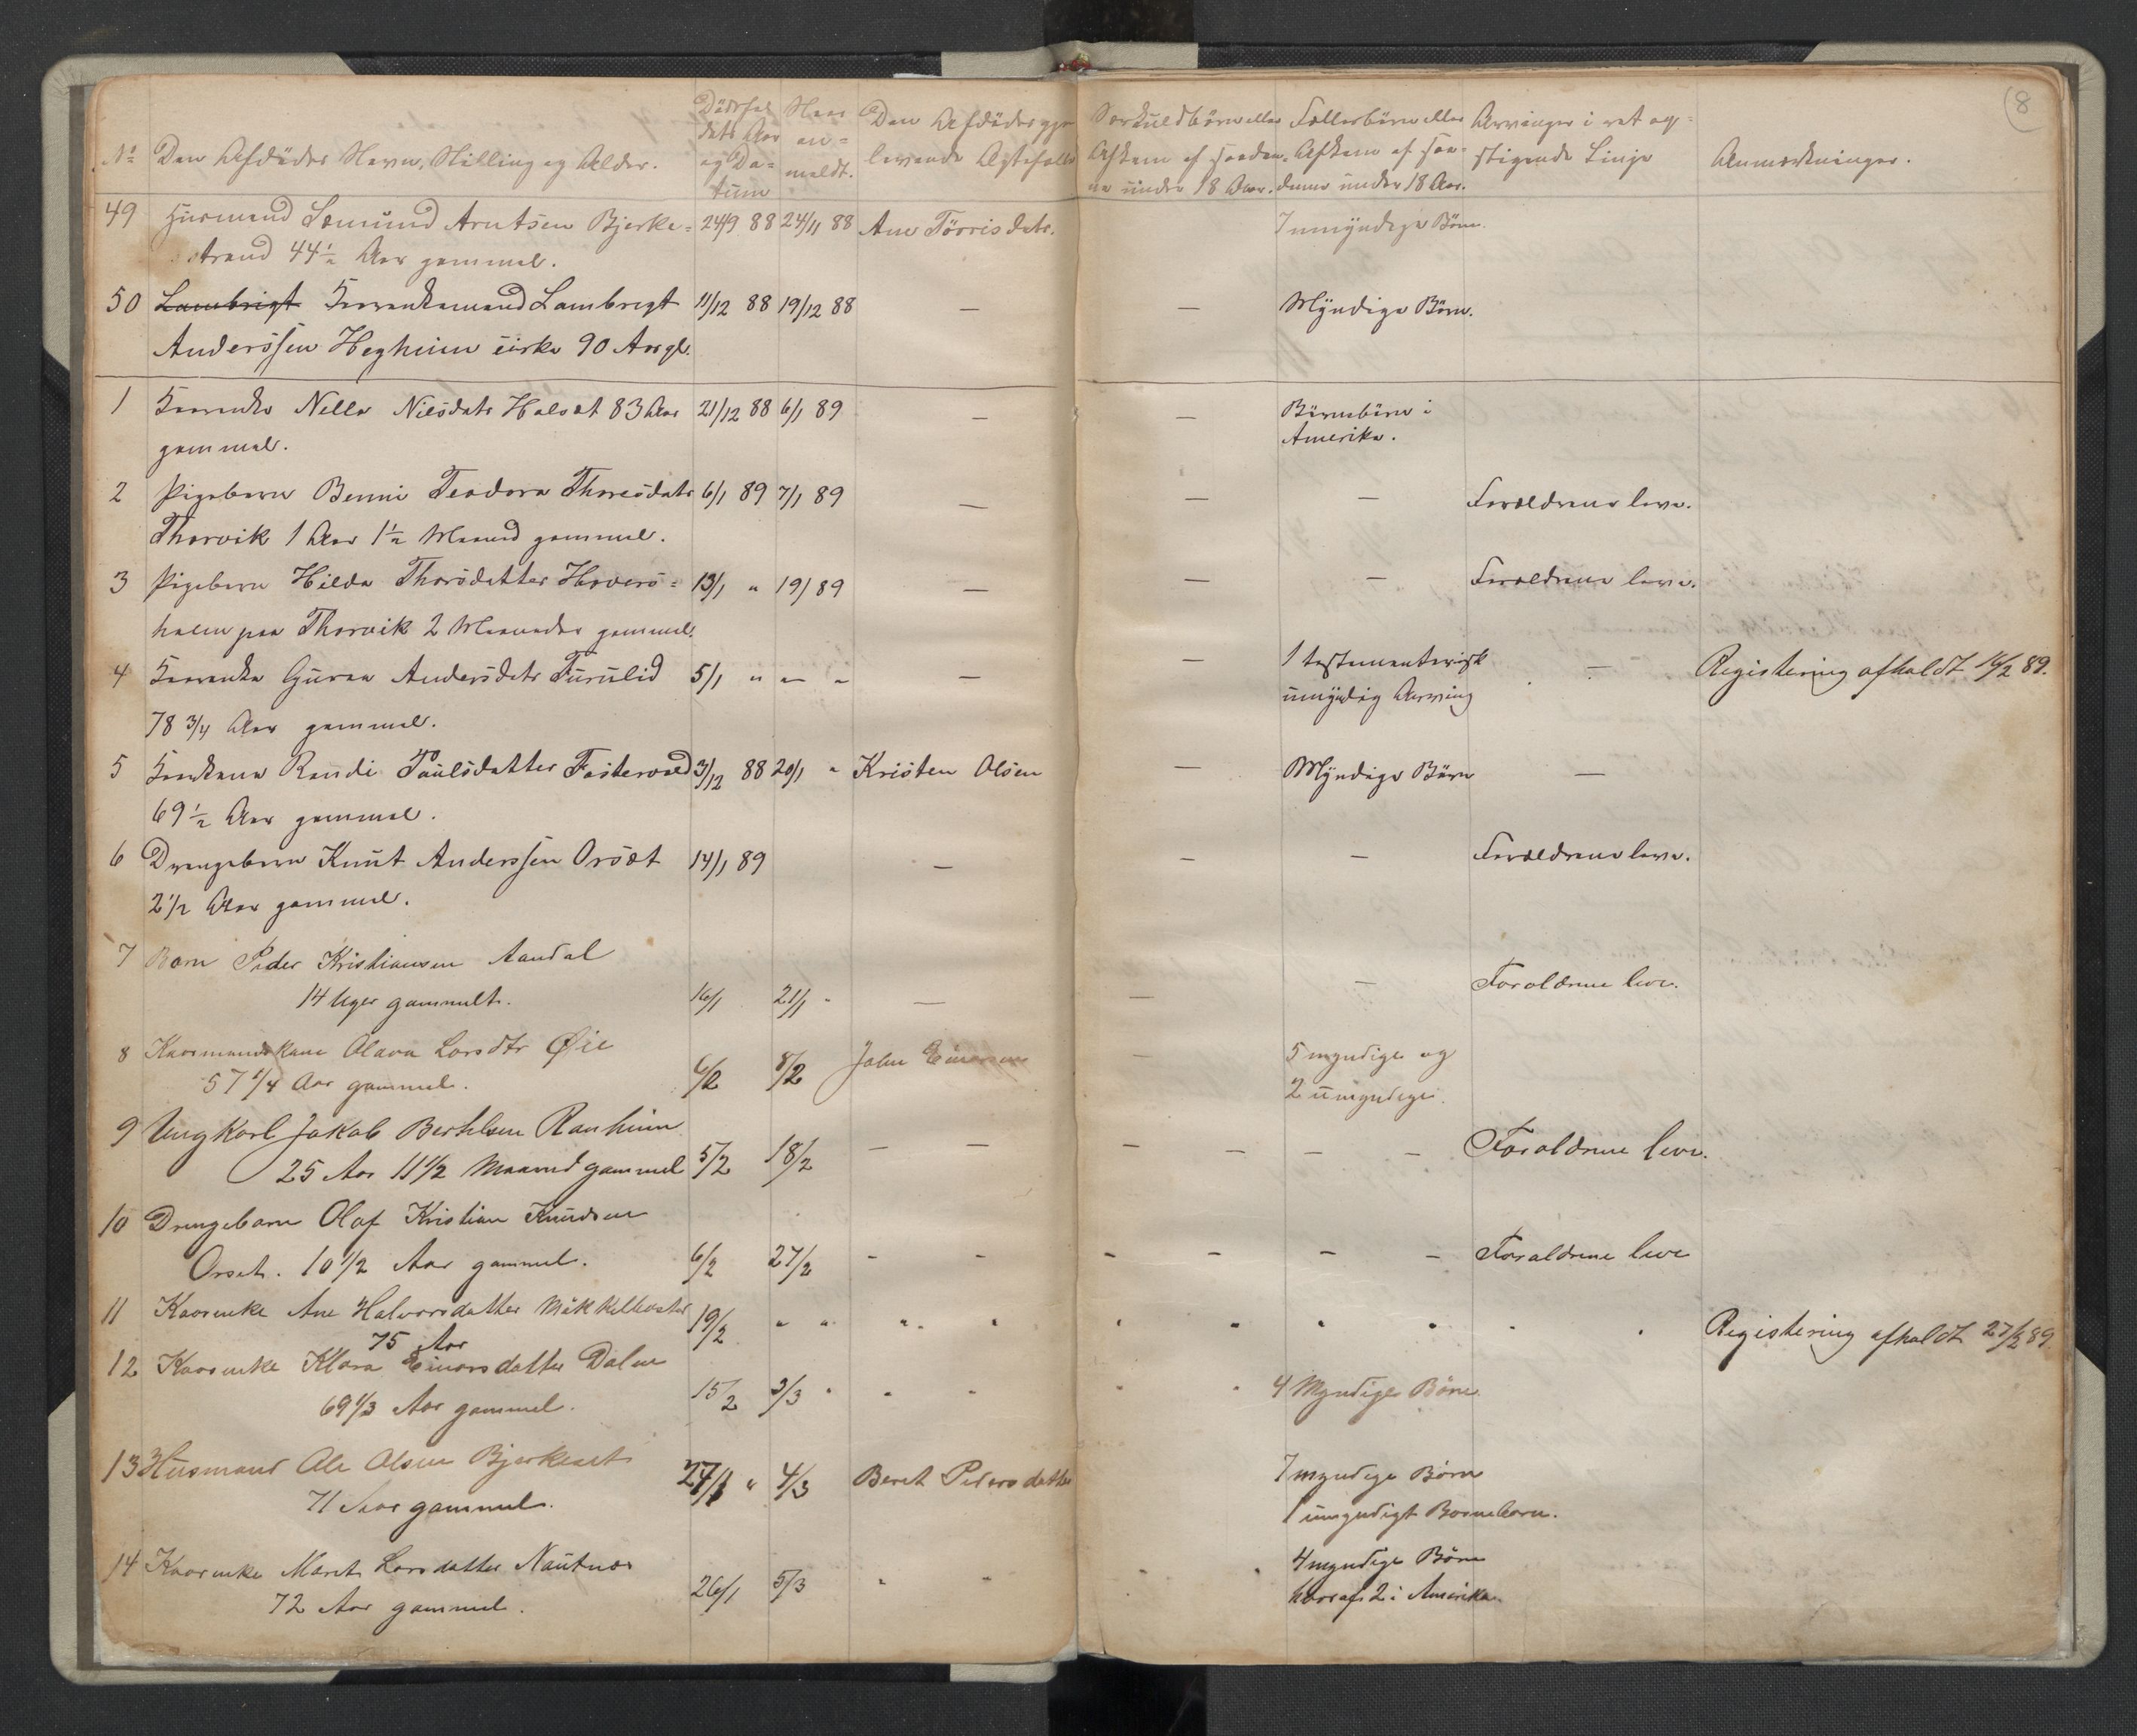 8
No Den Afdødes Navn, Stilling og Alder. Dødsfaldets Aar og Datum Naar anmeldt. Den Afdødes gjenlevende Ægtefælle Særkuldbørn eller Afkom af saadanne under 18 Aar. Fællesbørn eller Afkom af saadanne under 18 Aar. Arvinger i ret opstigende Linje Anmærkninger.
49 Husmand Sæmund Arntsen Bjerke= 24/9 88 24/11 88 Ane Tørrisdatr. 7 umyndige Børn.
strand 44 1/2 Aar gammel.
50 Lambrigt Kaarenkemand Lambregt 11/12 88 19/12 88 — — Myndige Børn.
Anderssen Hegheim cirka 90 Aar gl.
1 Kaarenke Nille Nilsdatr Holset 83 Aar 21/12 88 6/1 89 — — Børnebørn i
gammel. Amerika.
2 Pigebarn Benni Teodora Thoresdatr 6/1 89 7/1 89 — — — Forældrene leve.
Thorvik 1 Aar 1 1/2 Maaned gammel.
3 Pigebarn Hilda Thorsdatter Hovers= 13/1 " 19/ 89 — — — Forældrene leve.
holm paa Thorvik 2 Maaneder gammel.
4 Kaarenke Guroe Andersdatr Furulid 5/1 " — " — — 1 testamentarisk — Registering afholdt 16/2 89.
78 3/4 Aar gammel. umyndig Arving
5 Kaarkone Randi Paulsdatter Fostervold 3/12 88 20/1 " Kristen Olsen — Myndige Børn —
69 1/2 Aar gammel.
6 Drengebarn Knut Anderssen Orset 14/1 89 — — — Forældrene leve.
2 1/2 Aar gammel.
7 Barn Peder Kristiansen Aandal
14 Uger gammelt. 16/1 21/1 " — — — Forældrene leve.
8 Kaarmandskone Olava Larsdtr Øie John Einersen — 5 myndige og
57 1/4 Aar gammel. 6/2 8/2 2 umyndige.
9 Ungkarl Jakob Berthelsen Ranheim
25 Aar 11 1/2 Maaned gammel 5/2 18/2 — — — — — — Forældrene leve.
10 Drengebarn Olaf Kristian Knudsen
Orset. 10 1/2 Aar gammel. 6/2 27/2 - - - - - - Forældrene leve
11 Kaarenke Ane Halvorsdatter 19/2 " " " " " " " " " " Registering afholdt 27/2 89
75 Aar
12 Kaarenke Klara Einarsdatter Dalen
69 1/3 Aar gammel. 15/2 3/3 " " " " " 4 Myndige Børn
13 Husmand Ole Olsen Bjerkeset 27/1 " 4/3 Beret Pedersdatter 7 myndige Børn
71 Aar gammel. 1 umyndigt Barnebarn.
14 Kaarenke Marit Larsdatter Nautnes 26/1 5/3 " " " " 4 myndige Børn
72 Aar gammel. hvoraf 2 i Amerika.